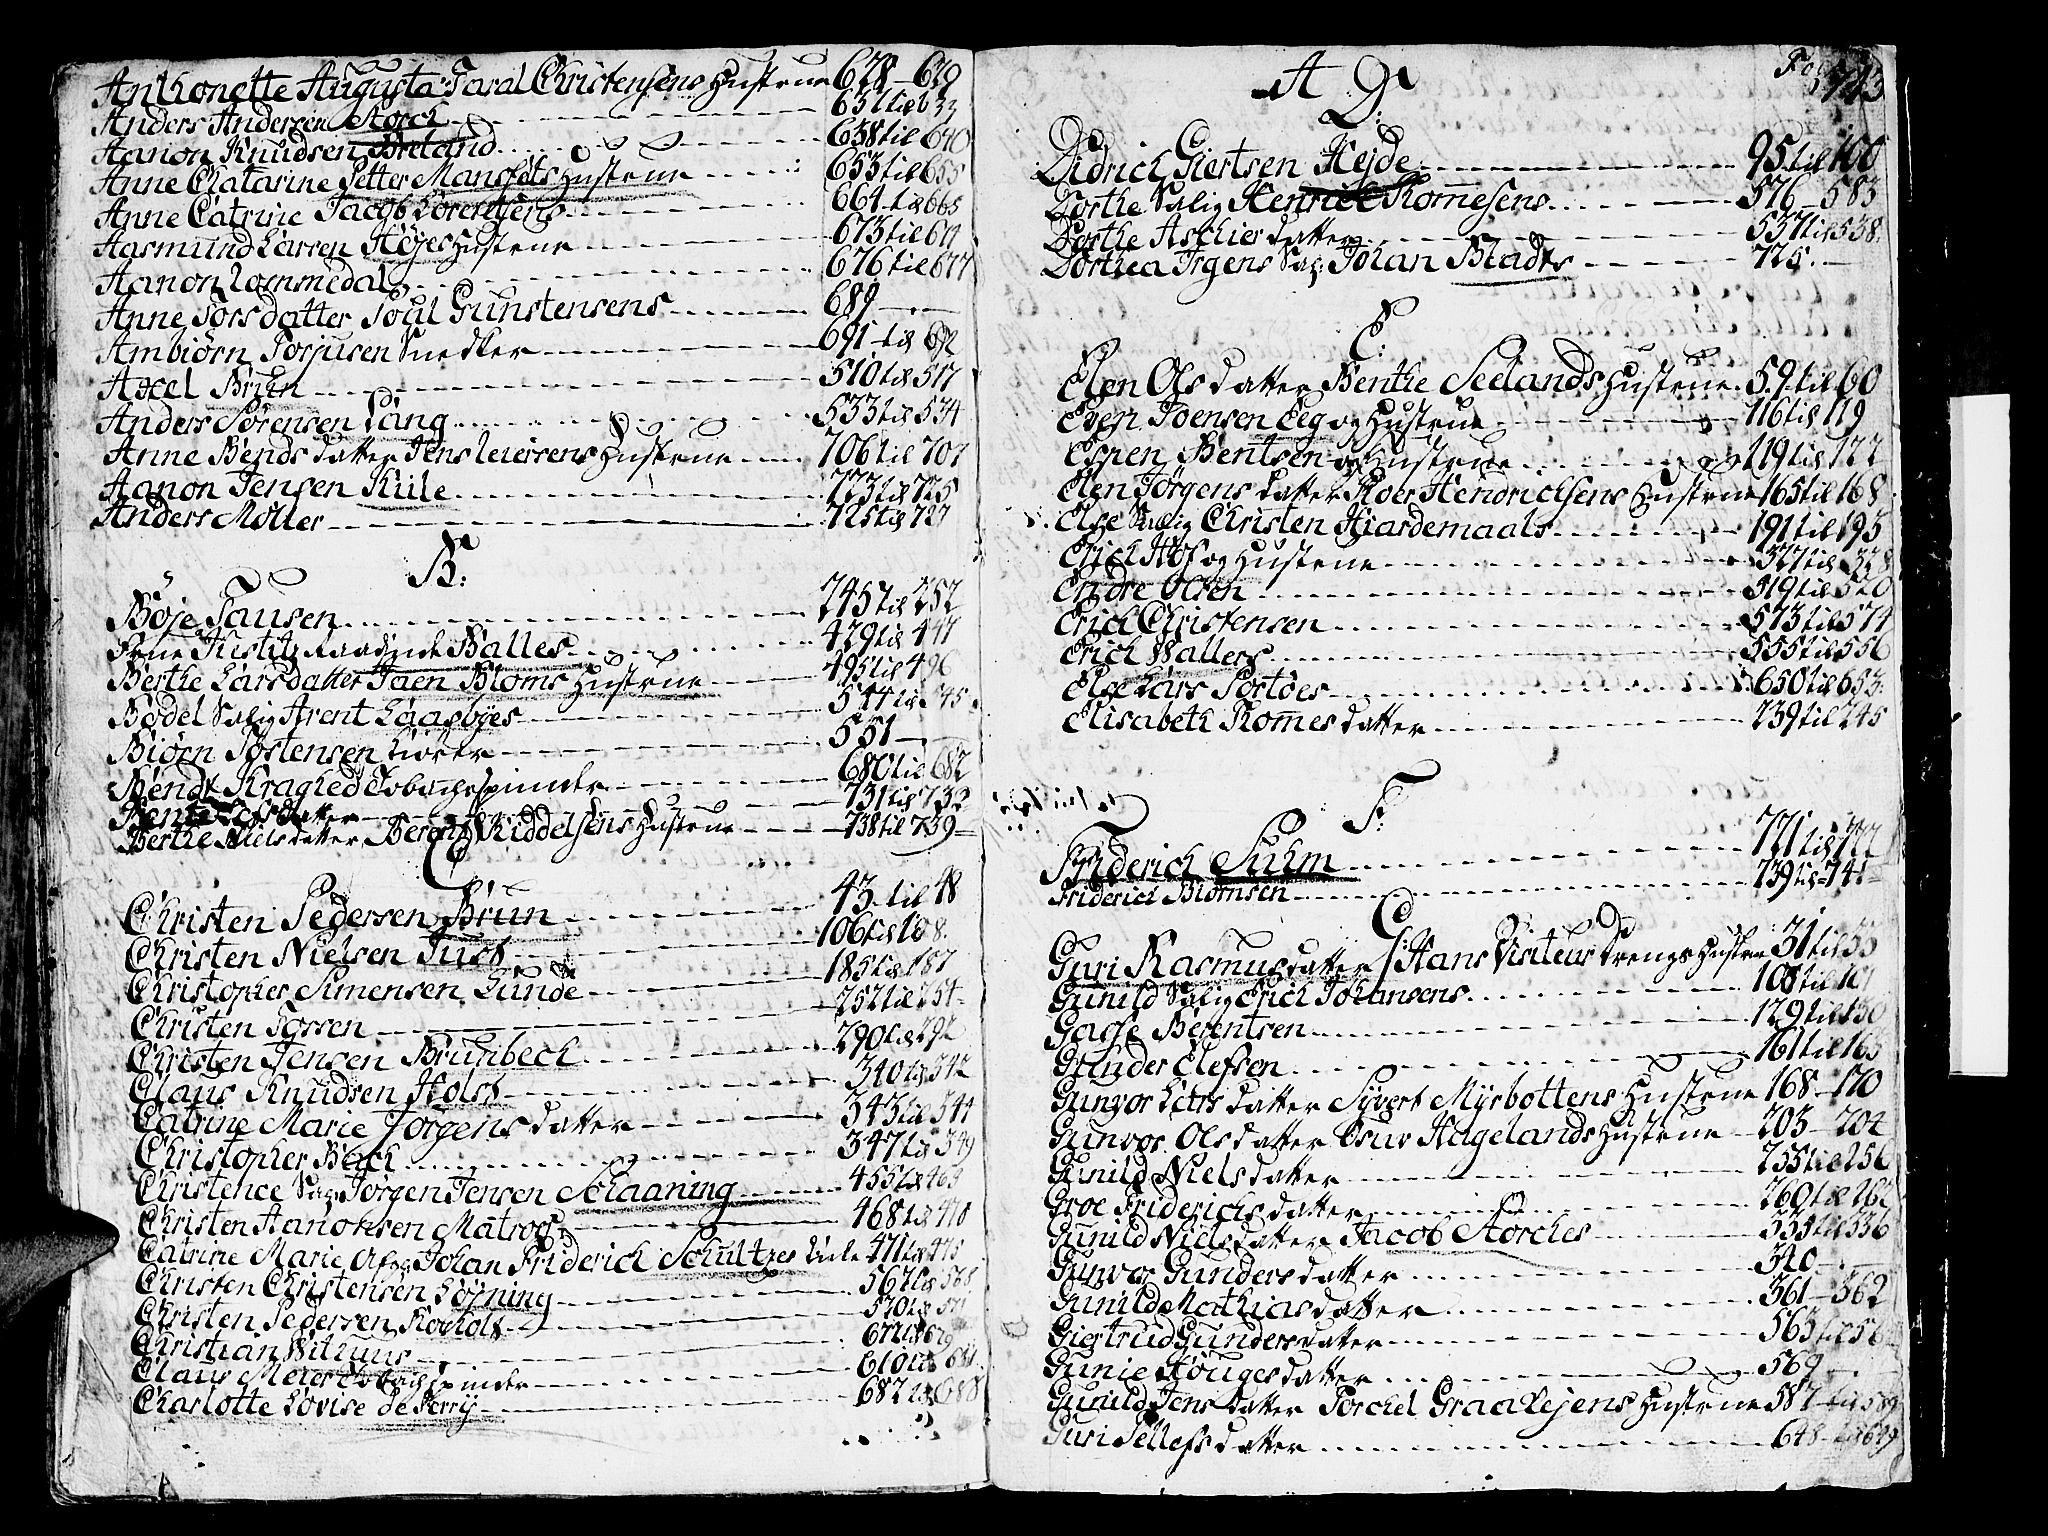 Anthonette Augusta Taral Christensens Hustrue 628 - 629
Anders Andersen Storch 631 til 633
Aanon Knudsen Breland 638 til 640
Anne Chatarine Petter Mansfelts Hustrue 653 til 655
Anne Catrine Jacob Lorentsens 664 til 665
Aasmund Larsen Høyes Hustrue 673 til 674
Aanon Lommedal 676 til 677
Anne Torsdatter Poul Gunstensens 689
Ambiørn Torjusen Snedker 691 til 692
Axel Bruhn 510 til 517
Anders Sørensen Lang 533 til 534
Anne Bendsdatter Jens Leiersens Hustrue 706 til 707
Aanon Jensen Kiile 723 til 725
Anders Møller 725 til 727
B:
Bøje Pausen 245 til 252
Frue Justitz Raadinde Balles 429 til 447
Berthe Larsdatter Joen Bloms Hustrue 495 til 496
Bodel Salig Arent Laasbyes 544 til 545
Biørn Tostensen 551
Bendt Kraghed Tobachspinder 680 til 682
datter 731 til 732
Berthe Nielsdatter Hustrue 738 til 739
C
Christen Pedersen Brun 43 til 48
Christen Nielsen Just 106 til 108
Christopher Simensen Lunde 185 til 187
Christen Torsen 252 til 254
Christen Jensen Brunbech 290 til 292
Claus Knudsen Holst 340 til 342
Catrine Marie Jørgensdatter 343 til 344
Christopher Bech 347 til 349
Christence Salig Jørgen Jensen Schaaning 455 til 463
Christen Aanonsen Matros 468 til 470
Catrine Marie Johan Friderich Schultzes 471 til 475
Christen Christensen Løpning 567 til 568
Christen Pedersen Korholt 570 til 571
Christian Withuus 622 til 629
Claus Meier Tobachspinder 610 til 611
Charlotte Lovise de Ferry 682 til 688
A D Fol: 743
D:
Didrich Giertsen Hejde 95 til 100
Dorthe Salig Henrich Thomesens 576 - 583
Dorthe Aschiersdatter 537 til 538
Dorthea Irgens Sal: Johan Bladts 725
E:
Elen Olsdatter Benthe Seelands Hustrue 59 til 60
Even Joensen Eeg og Hustrue 116 til 119
Espen Bentsen og Hustrue 119 til 122
Elen Jørgensdatter Roer Hendrichsens Hustrue 165 til 168
Else Salig Christen Hiardemaals 191 til 195
Erich Hof og Hustrue 327 til 328
Endre Olsen 519 til 520
Erich Christensen 573 til 574
Erich Wallers 555 til 556
Else Lars Portøes 650 til 653
Elisabeth Thomesdatter 239 til 245
F:
Friderich Suhm 721 til 722
Friderich Biørnsen 739 til 741
G:
Guri Rasmusdatter Hans Visiteur Drengs Hustrue 31 til 33
Gunild Salig Erich Johansens 108 til 109
Gasse Berentsen 129 til 130
Gunder Elefsen 161 til 165
Gunvor Larsdatter Syvert Myrbottens Hustrue 168 - 170
Gunvor Olsdatter Osuv Hagelands Hustrue 203 - 204
Gunild Nielsdatter 255 til 256
Groe Friderichsdatter 260 til 262
Gunild Nielsdatter Jacob Storches 335 til 336
Gunvor Gundersdatter 340
Gunild Mathiasdatter 361 - 362
Giertrud Gundersdatter 563 til
Gunie Høugesdatter 569
Gunild Jensdatter Torchel Graavejens Hustrue 587 til 589
Guri Pellefsdatter 648 til 649